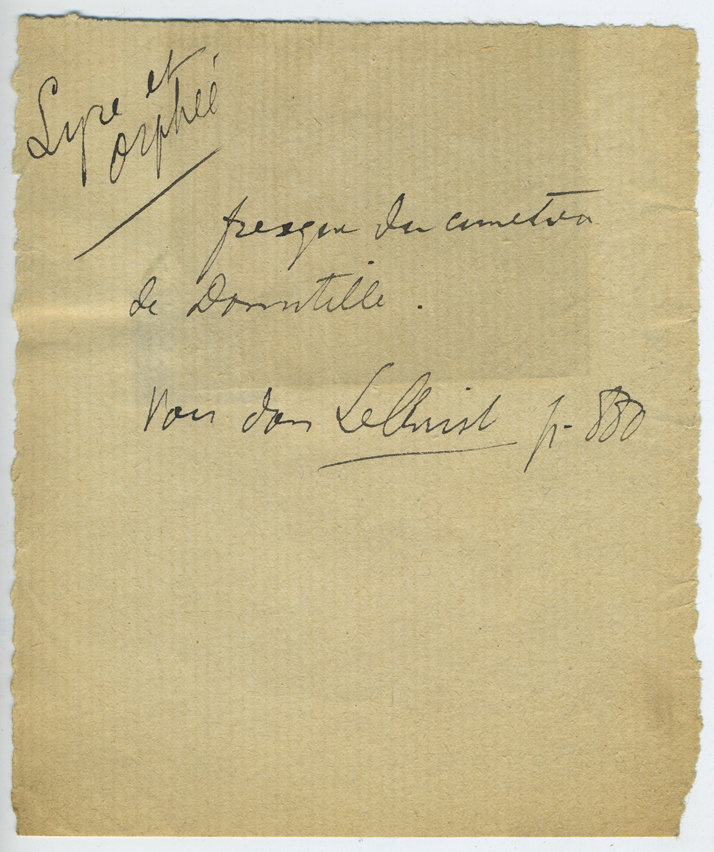 Lyre et
Orphée
fresque du cimetière
de Domitille.
Voir dans Le Christ p. 880